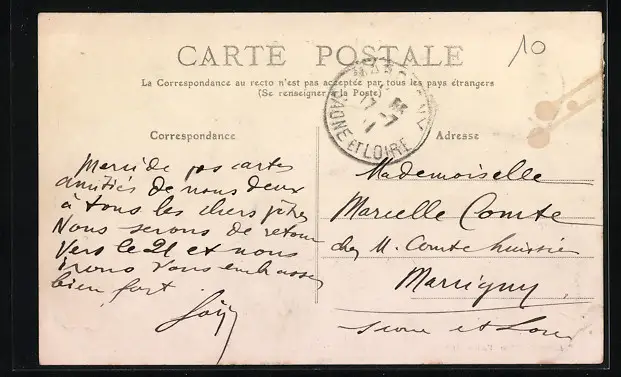 CARTE POSTALE
10
La Correspondance au recto n'est pas acceptée par tous les pays étrangers
(Se renseigner à la Poste)
SAONE ET LOIRE
17 - 7
11
Correspondance
Adresse
Merci de vos cartes
amitiés de nous deux
à tous les chers
Nous serons de retour
vers le 21 et nous
irons vous embrasser
bien fort
Mademoiselle
Marcelle Comte
chez M. Comte huissier
Marcigny
Saone et Loire